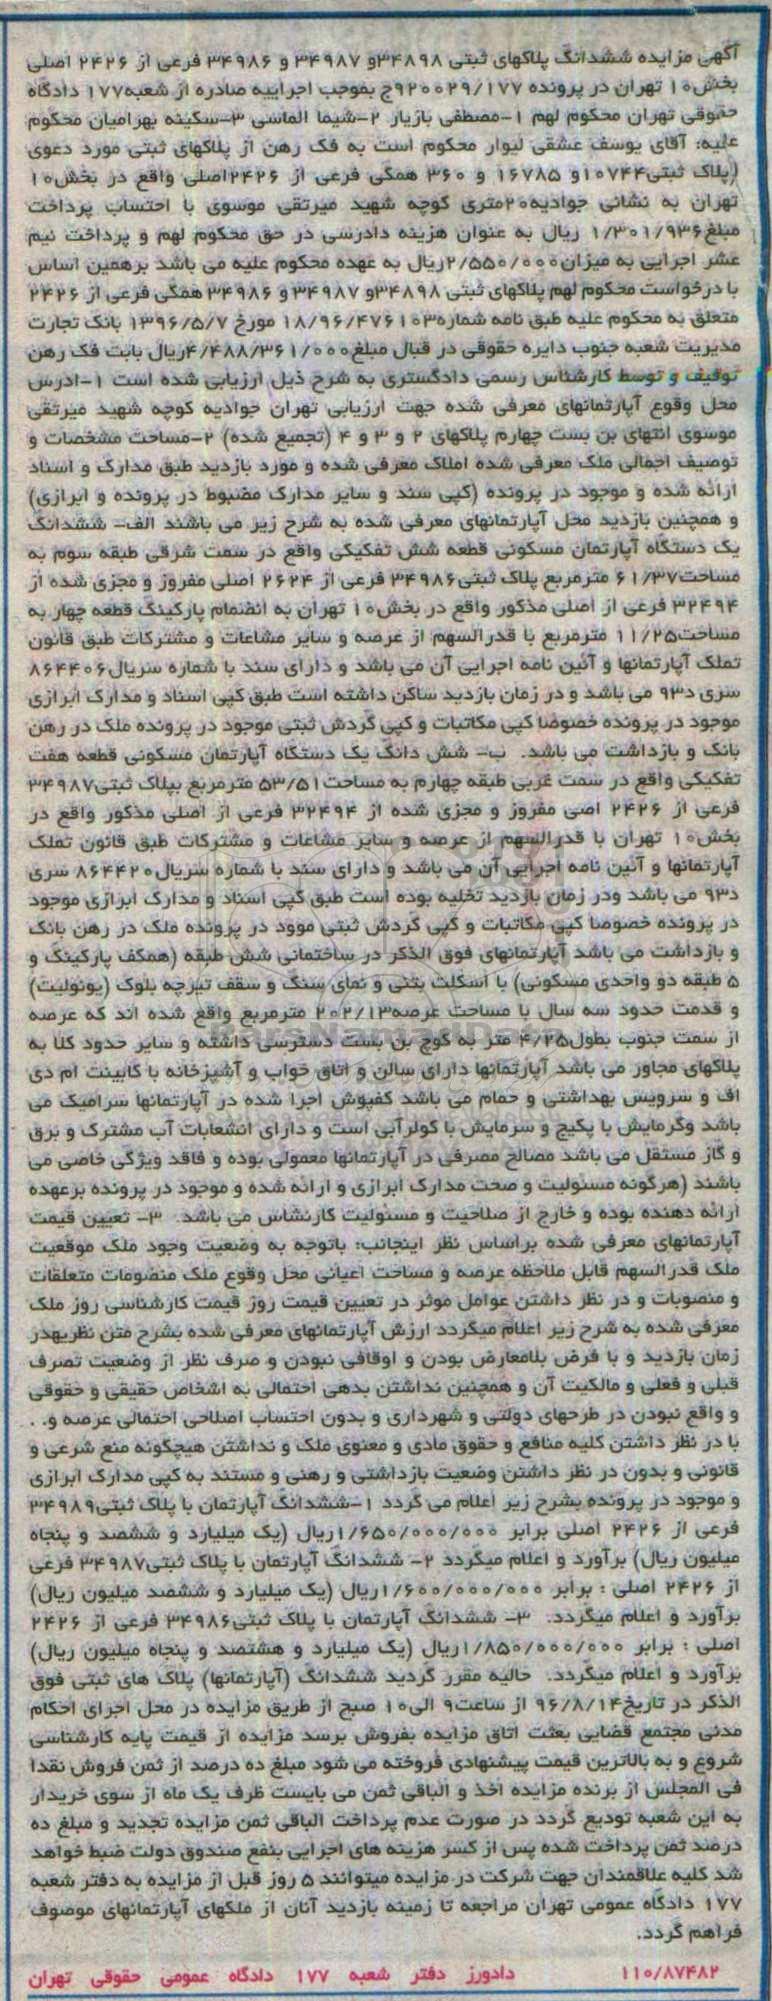 آگهی مزایده ششدانگ پلاکهای ثبتی ۳۴۸۹۸و ۳۴۹۸۷ و ۳۴۹۸۶ فرعی از ۲۴۲۶ اصلی
بخش۱۰ تهران در پرونده ۹۲۰۰۲۹/۱۷۷ج بموجب اجراییه صادره از شعبه۱۷۷ دادگاه
حقوقی تهران محکوم لهم ۱-مصطفی بازیار ۲-شیما الماسی ۳-سکینه بهرامیان محکوم
علیه: آقای یوسف عشقی لیوار محکوم است به فک رهن از پلاکهای ثبتی مورد دعوی
(پلاک ثبتی۱۰۷۴۴و ۱۶۷۸۵ و ۳۶۰ همگی فرعی از ۲۴۲۶اصلی واقع در بخش۱۰
تهران به نشانی جوادیه۲۰متری کوچه شهید میرتقی موسوی با احتساب پرداخت
مبلغ۱/۳۰۱/۹۳۶ ریال به عنوان هزینه دادرسی در حق محکوم لهم و پرداخت نیم
عشر اجرایی به میزان۲/۵۵۰/۰۰۰ریال به عهده محکوم علیه می باشد برهمین اساس
با درخواست محکوم لهم پلاکهای ثبتی ۳۴۸۹۸و ۳۴۹۸۷ و ۳۴۹۸۶ همگی فرعی از ۲۴۲۶
متعلق به محکوم علیه طبق نامه شماره۱۸/۹۶/۴۷۶۱۰۳ مورخ ۱۳۹۶/۵/۷ بانک تجارت
مدیریت شعبه جنوب دایره حقوقی در قبال مبلغ۴/۴۸۸/۳۶۱/۰۰۰ریال بابت فک رهن
توقیف و توسط کارشناس رسمی دادگستری به شرح ذیل ارزیابی شده است ۱-ادرس
محل وقوع آپارتمانهای معرفی شده جهت ارزیابی تهران جوادیه کوچه شهید میرتقی
موسوی انتهای بن بست چهارم پلاکهای ۲ و ۳ و ۴ (تجمیع شده) ۲-مساحت مشخصات و
توصیف اجمالی ملک معرفی شده املاک معرفی شده و مورد بازدید طبق مدارک و اسناد
ارائه شده و موجود در پرونده (کپی سند و سایر مدارک مضبوط در پرونده و ابرازی)
و همچنین بازدید محل آپارتمانهای معرفی شده به شرح زیر می باشند الف- ششدانگ
یک دستگاه آپارتمان مسکونی قطعه شش تفکیکی واقع در سمت شرقی طبقه سوم به
مساحت۶۱/۳۷ مترمربع پلاک ثبتی۳۴۹۸۶ فرعی از ۲۶۲۴ اصلی مفروز و مجزی شده از
۳۲۴۹۴ فرعی از اصلی مذکور واقع در بخش۱۰ تهران به انضمام پارکینگ قطعه چهار به
مساحت۱۱/۲۵ مترمربع با قدرالسهم از عرصه و سایر مشاعات و مشترکات طبق قانون
تملک آپارتمانها و آئین نامه اجرایی آن می باشد و دارای سند با شماره سریال۸۶۴۴۰۶
سری د۹۳ می باشد و در زمان بازدید ساکن داشته است طبق کپی اسناد و مدارک ابرازی
موجود در پرونده خصوصا کپی مکاتبات و کپی گردش ثبتی موجود در پرونده ملک در رهن
بانک و بازداشت می باشد. ب- شش دانگ یک دستگاه آپارتمان مسکونی قطعه هفت
تفکیکی واقع در سمت غربی طبقه چهارم به مساحت۵۳/۵۱ مترمربع بپلاک ثبتی۳۴۹۸۷
فرعی از ۲۴۲۶ اصی مفروز و مجزی شده از ۳۲۴۹۴ فرعی از اصلی مذکور واقع در
بخش۱۰ تهران با قدرالسهم از عرصه و سایر مشاعات و مشترکات طبق قانون تملک
آپارتمانها و آئین نامه اجرایی آن می باشد و دارای سند با شماره سریال۸۶۴۴۲۰ سری
د۹۳ می باشد ودر زمان بازدید تخلیه بوده است طبق کپی اسناد و مدارک ابرازی موجود
در پرونده خصوصا کپی مکاتبات و کپی گردش ثبتی موود در پرونده ملک در رهن بانک
و بازداشت می باشد آپارتمانهای فوق الذکر در ساختمانی شش طبقه (همکف پارکینگ و
۵ طبقه دو واحدی مسکونی) با اسکلت بتنی و نمای سنگ و سقف تیرچه بلوک (یونولیت)
و قدمت حدود سه سال با مساحت عرصه۲۰۲/۱۳ مترمربع واقع شده اند که عرصه
از سمت جنوب بطول۴/۲۵ متر به کوچ بن بست دسترسی داشته و سایر حدود کلا به
پلاکهای مجاور می باشد آپارتمانها دارای سالن و اتاق خواب و آشپزخانه با کابینت ام دی
اف و سرویس بهداشتی و حمام می باشد کفپوش اجرا شده در آپارتمانها سرامیک می
باشد وگرمایش با پکیج و سرمایش با کولرآبی است و دارای انشعابات آب مشترک و برق
و گاز مستقل می باشد مصالح مصرفی در آپارتمانها معمولی بوده و فاقد ویژگی خاصی می
باشند (هرگونه مسئولیت و صحت مدارک ابرازی و ارائه شده و موجود در پرونده برعهده
ارائه دهنده بوده و خارج از صلاحیت و مسئولیت کارشناس می باشد. ۳- تعیین قیمت
آپارتمانهای معرفی شده براساس نظر اینجانب: باتوجه به وضعیت وجود ملک موقعیت
ملک قدرالسهم قابل ملاحظه عرصه و مساحت اعیانی محل وقوع ملک منضومات متعلقات
و منصوبات و در نظر داشتن عوامل موثر در تعیین قیمت روز قیمت کارشناسی روز ملک
معرفی شده به شرح زیر اعلام میگردد ارزش آپارتمانهای معرفی شده بشرح متن نظریهدر
زمان بازدید و با فرض بلامعارض بودن و اوقافی نبودن و صرف نظر از وضعیت تصرف
قبلی و فعلی و مالکیت آن و همچنین نداشتن بدهی احتمالی به اشخاص حقیقی و حقوقی
و واقع نبودن در طرحهای دولتی و شهرداری و بدون احتساب اصلاحی احتمالی عرصه و. .
با در نظر داشتن کلیه منافع و حقوق مادی و معنوی ملک و نداشتن هیچگونه منع شرعی و
قانونی و بدون در نظر داشتن وضعیت بازداشتی و رهنی و مستند به کپی مدارک ابرازی
و موجود در پرونده بشرح زیر اعلام می گردد ۱-ششدانگ آپارتمان با پلاک ثبتی۳۴۹۸۹
فرعی از ۲۴۲۶ اصلی برابر ۱/۶۵۰/۰۰۰/۰۰۰ریال (یک میلیارد و ششصد و پنجاه
میلیون ریال) برآورد و اعلام میگردد ۲- ششدانگ آپارتمان با پلاک ثبتی۳۴۹۸۷ فرعی
از ۲۴۲۶ اصلی : برابر ۱/۶۰۰/۰۰۰/۰۰۰ریال (یک میلیارد و ششصد میلیون ریال)
برآورد و اعلام میگردد. ۳- ششدانگ آپارتمان با پلاک ثبتی۳۴۹۸۶ فرعی از ۲۴۲۶
اصلی : برابر ۱/۸۵۰/۰۰۰/۰۰۰ریال (یک میلیارد و هشتصد و پنجاه میلیون ریال)
برآورد و اعلام میگردد. حالیه مقرر گردید ششدانگ (آپارتمانها) پلاک های ثبتی فوق
الذکر در تاریخ۹۶/۸/۱۴ از ساعت۹ الی۱۰ صبح از طریق مزایده در محل اجرای احکام
مدنی مجتمع قضایی بعثت اتاق مزایده بفروش برسد مزایده از قیمت پایه کارشناسی
شروع و به بالاترین قیمت پیشنهادی فروخته می شود مبلغ ده درصد از ثمن فروش نقدا
فی المجلس از برنده مزایده اخذ و الباقی ثمن می بایست ظرف یک ماه از سوی خریدار
به این شعبه تودیع گردد در صورت عدم پرداخت الباقی ثمن مزایده تجدید و مبلغ ده
درصد ثمن پرداخت شده پس از کسر هزینه های اجرایی بنفع صندوق دولت ضبط خواهد
شد کلیه علاقمندان جهت شرکت در مزایده میتوانند ۵ روز قبل از مزایده به دفتر شعبه
۱۷۷ دادگاه عمومی تهران مراجعه تا زمینه بازدید آنان از ملکهای آپارتمانهای موصوف
فراهم گردد.
۱۱۰/۸۷۴۸۲ دادورز دفتر شعبه ۱۷۷ دادگاه عمومی حقوقی تهران